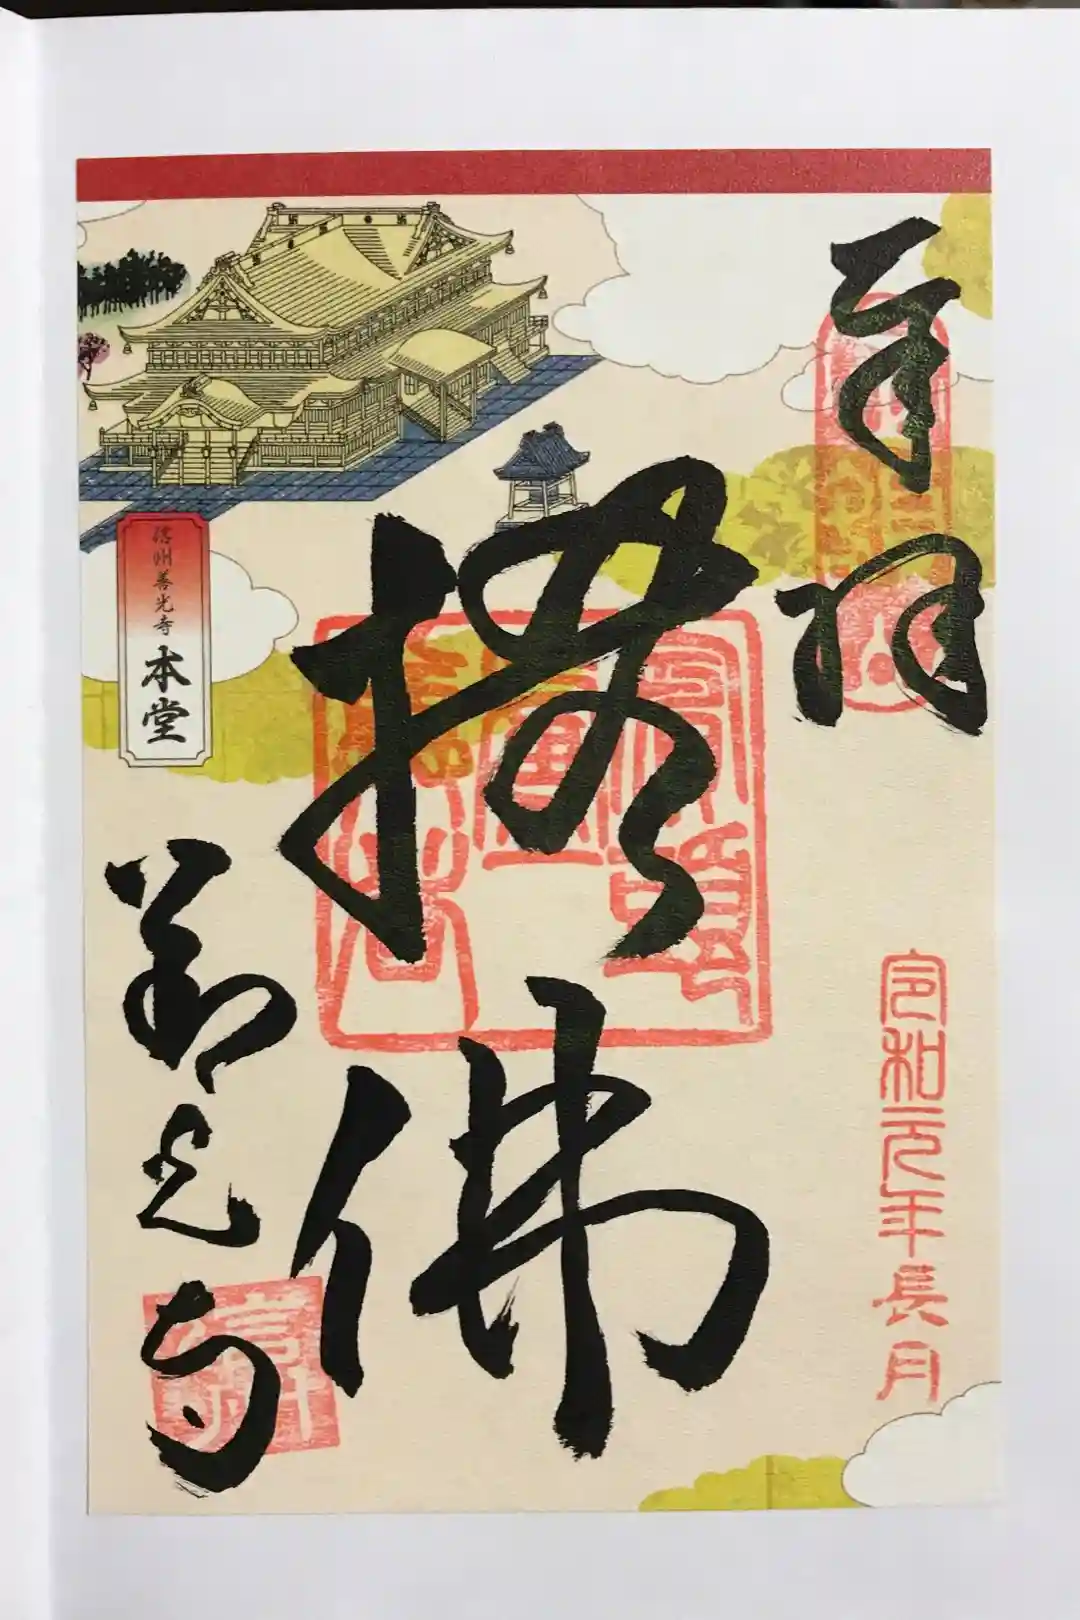 奉拝
令和元年長月
撫佛
信州善光寺
本堂
善光寺